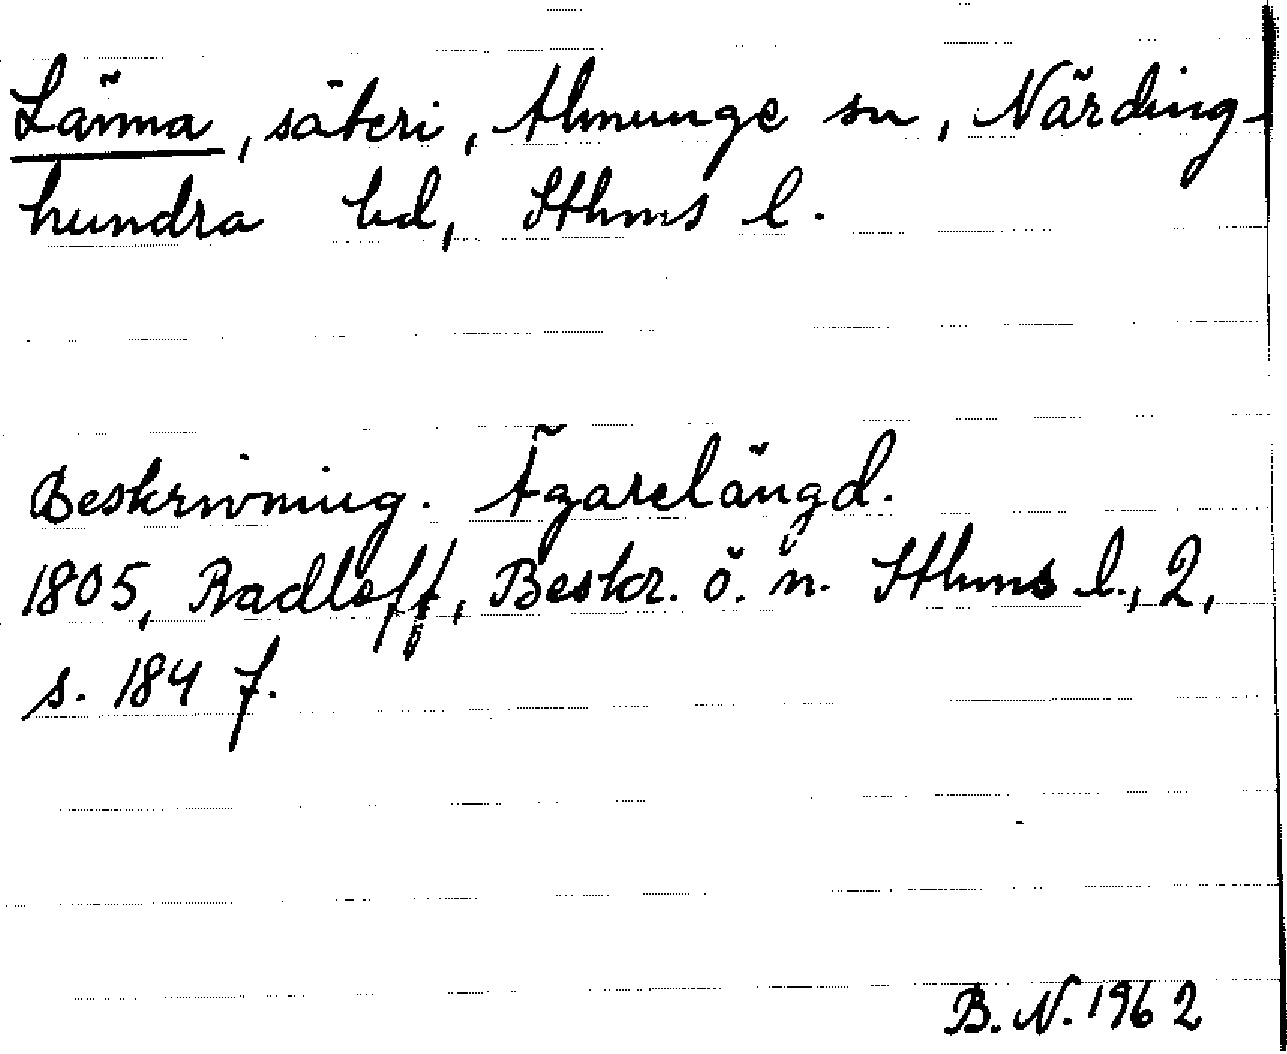 Länna, säteri, Almunge sn, Närding-
hundra hd, Sthms l.
Beskrivning. Ägarelängd.
1805, Radloff, Beskr. ö. n. Sthms l., 2,
s. 184 f.
B. N. 1962